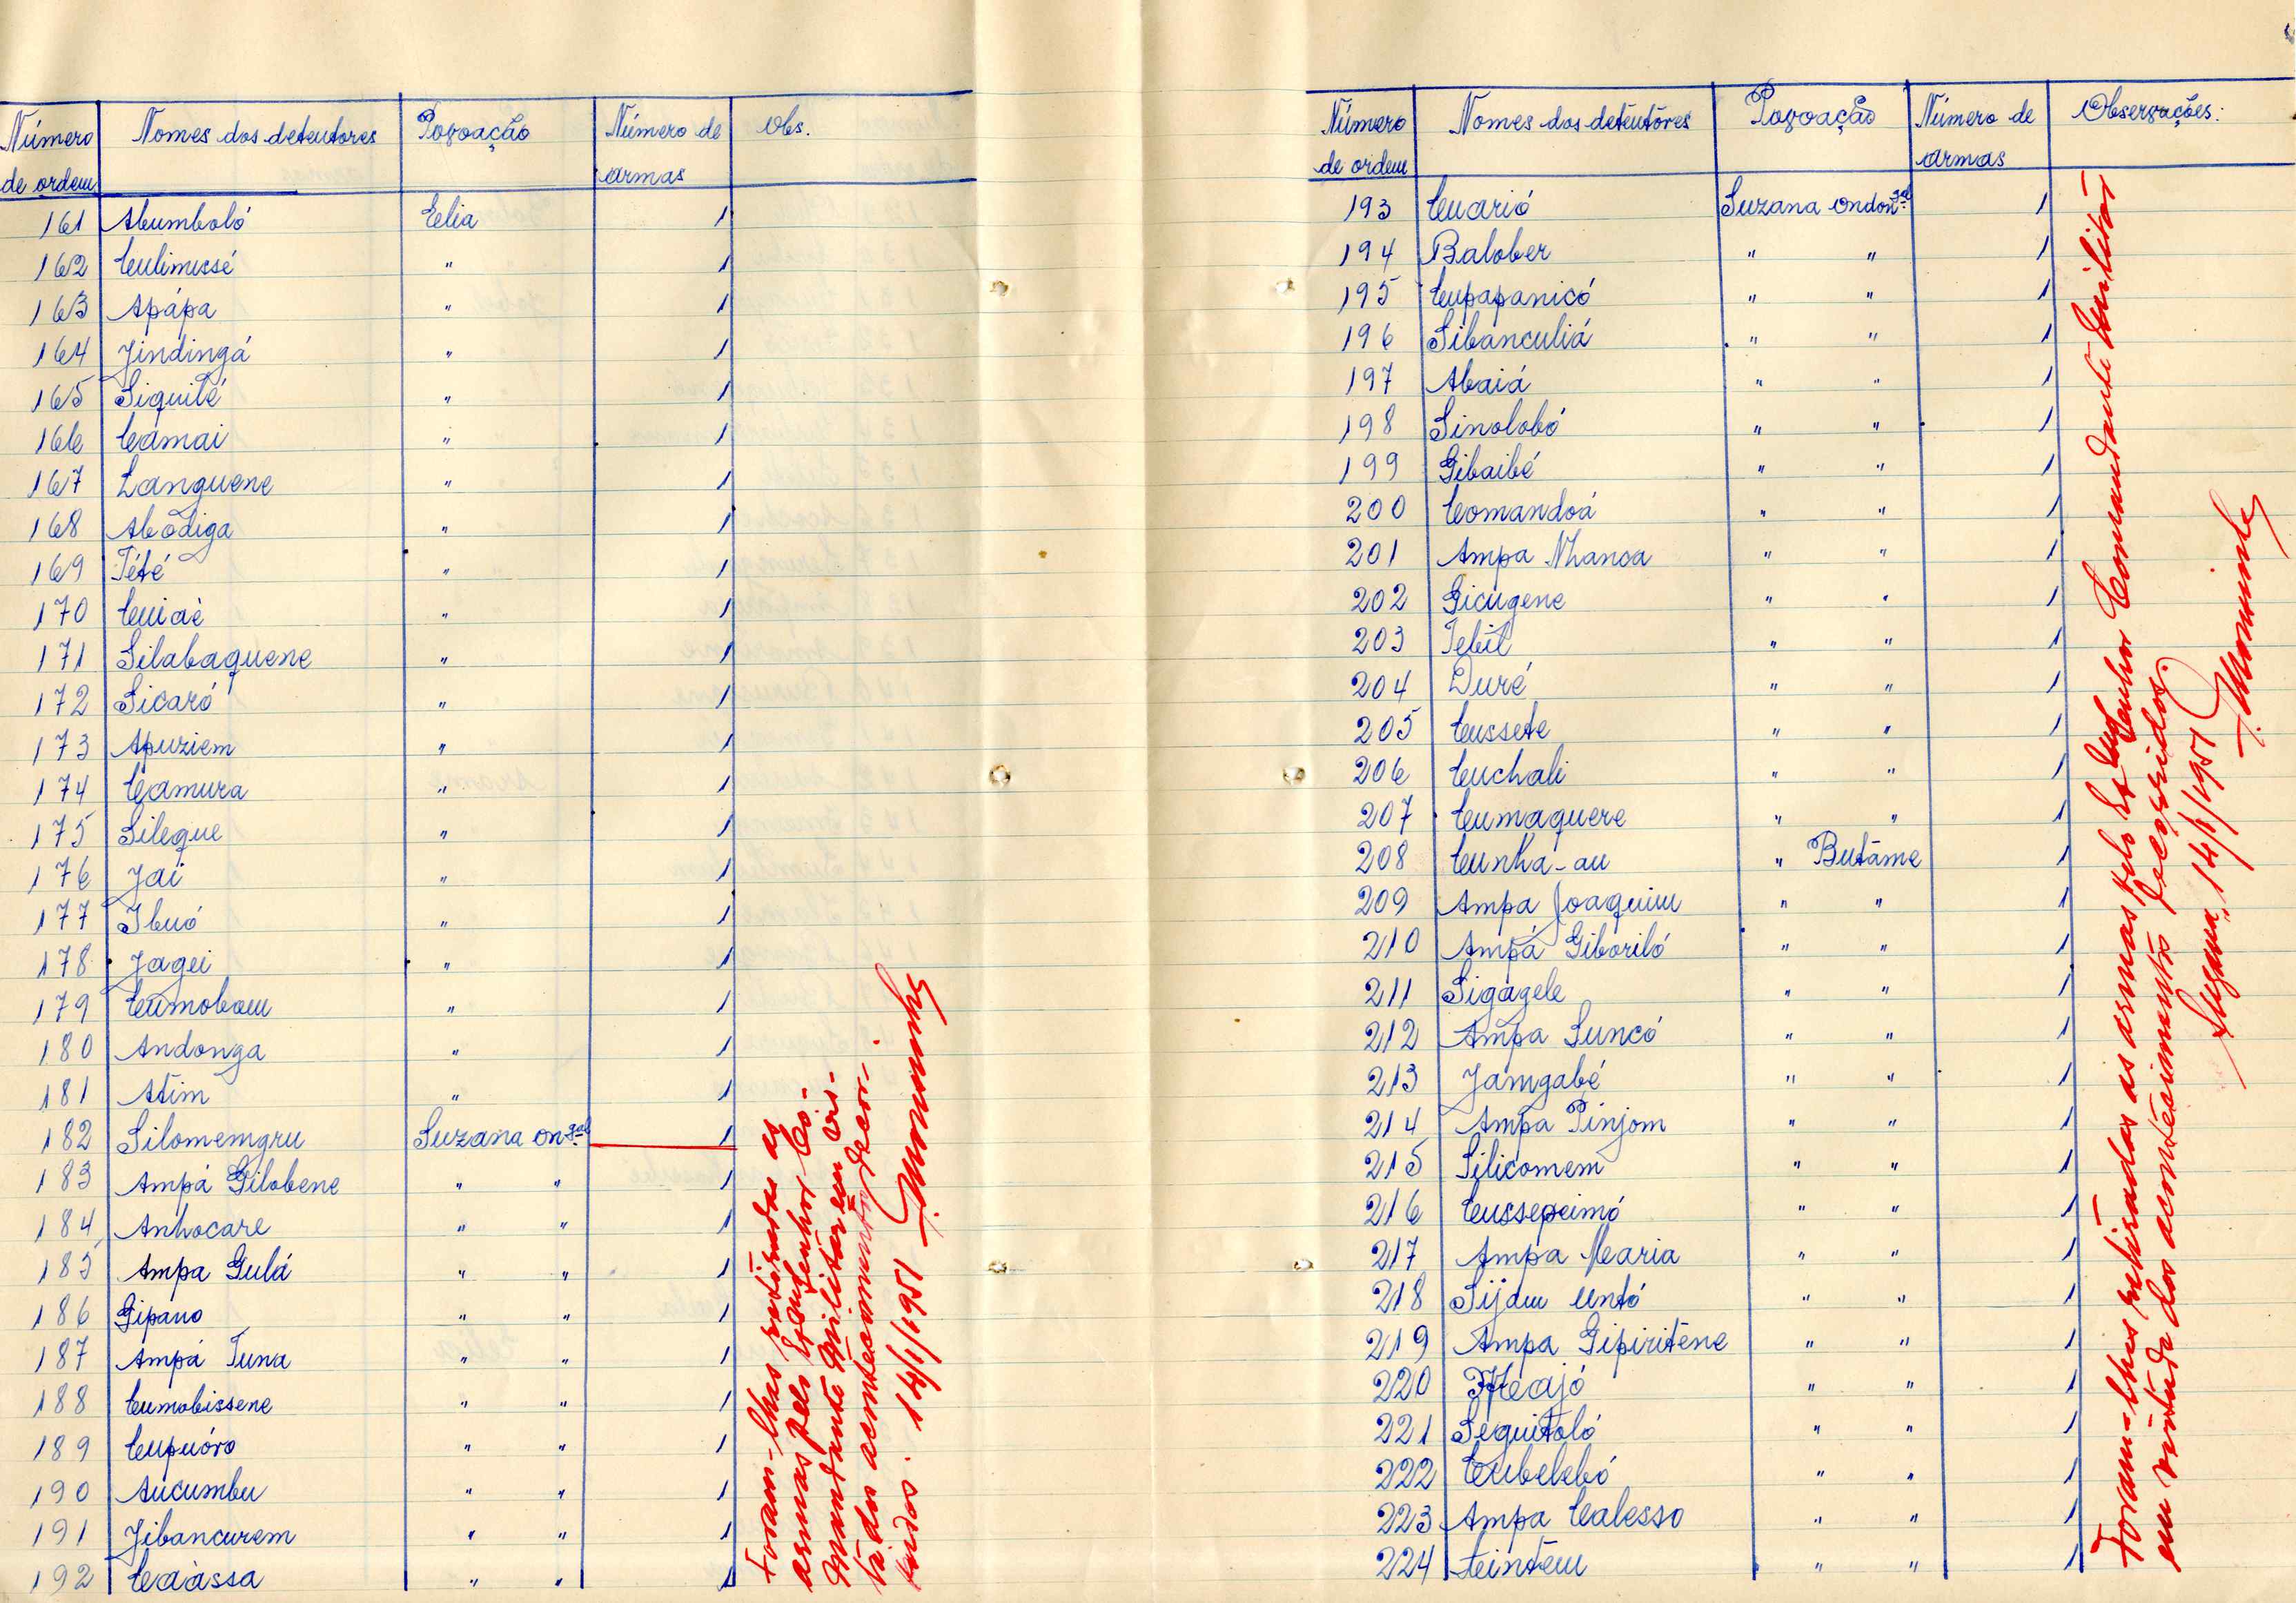 Número de ordem Nomes dos detentores Povoação Número de armas Obs.
161 Abumboló Elia 1
162 Culimissé " 1
163 Apápa " 1
164 Jindingá " 1
165 Siquilé " 1
166 Camai " 1
167 Languene " 1
168 Abodiga " 1
169 Tété " 1
170 Cuiaè " 1
171 Silabaquene " 1
172 Sicaró " 1
173 Apuziem " 1
174 Camura " 1
175 Sileque " 1
176 Jai " 1
177 Ibuó " 1
178 Jagei " 1
179 Cumobam " 1
180 Andonga " 1
181 Atim " 1
182 Silomemgru Suzana ongal 1
183 Ampá Gilobene " " 1
184 Anhocare " " 1
185 Ampa Gulá " " 1
186 Gipano " " 1
187 Ampá Tuna " " 1
188 Cumobissene " " 1
189 Cupuóro " " 1
190 Aucumbu " " 1
191 Jibancurem " " 1
192 Caàssa " " 1
Foram-lhes retiradas as
armas pelo Senhor Co-
mandante Militar em vir-
tude dos acontecimentos decor-
ridos. 14/1/1951
Número de ordem Nomes dos detentôres Povoação Número de armas Observações:
193 Cuarió Suzana ondongal 1
194 Balober " " 1
195 Cupapanicó " " 1
196 Sibanculiá " " 1
197 Abaiá " " 1
198 Sinolobó " " 1
199 Gibaibé " " 1
200 Comandoá " " 1
201 Ampa Nhanca " " 1
202 Gicugene " " 1
203 Tebil " " 1
204 Duré " " 1
205 Cussete " " 1
206 Cuchali " " 1
207 Cumaquere " " 1
208 Cunha-au " Butame 1
209 Ampa Joaquim " " 1
210 Ampá Giboriló " " 1
211 Sigagele " " 1
212 Ampa Suncó " " 1
213 Jamgabé " " 1
214 Ampa Pinjom " " 1
215 Silicomem " " 1
216 Cussepeimó " " 1
217 Ampa Maria " " 1
218 Untó " " 1
219 Ampa Gipiritene " " 1
220 " " 1
221 Sequitoló " " 1
222 Cubelebó " " 1
223 Ampa Calesso " " 1
224 Aeintem " " 1
Foram-lhes retiradas as armas pelo Senhor Comandante Militar
em virtude dos acontecimentos decorridos.
Suzana, 14/1/1951